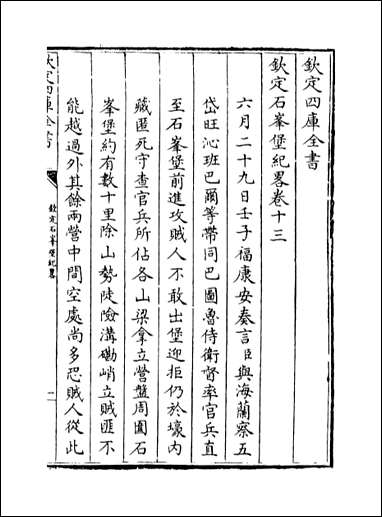 欽定四庫全書
欽定石峯堡紀畧卷十三
六月二十九日壬子福康安奏言臣與海蘭察五
岱旺沁班巴爾等帶同巴圖魯侍衛督率官兵直
至石峯堡前進攻賊人不敢出堡迎拒仍於壕內
藏匿死守查官兵所佔各山梁拿立營盤周圍石
峯堡約有數十里除山勢陡險溝磡峭立賊匪不
能越過外其餘兩營中間空處尚多恐賊人從此
欽定四庫全書
欽定石峯堡紀畧